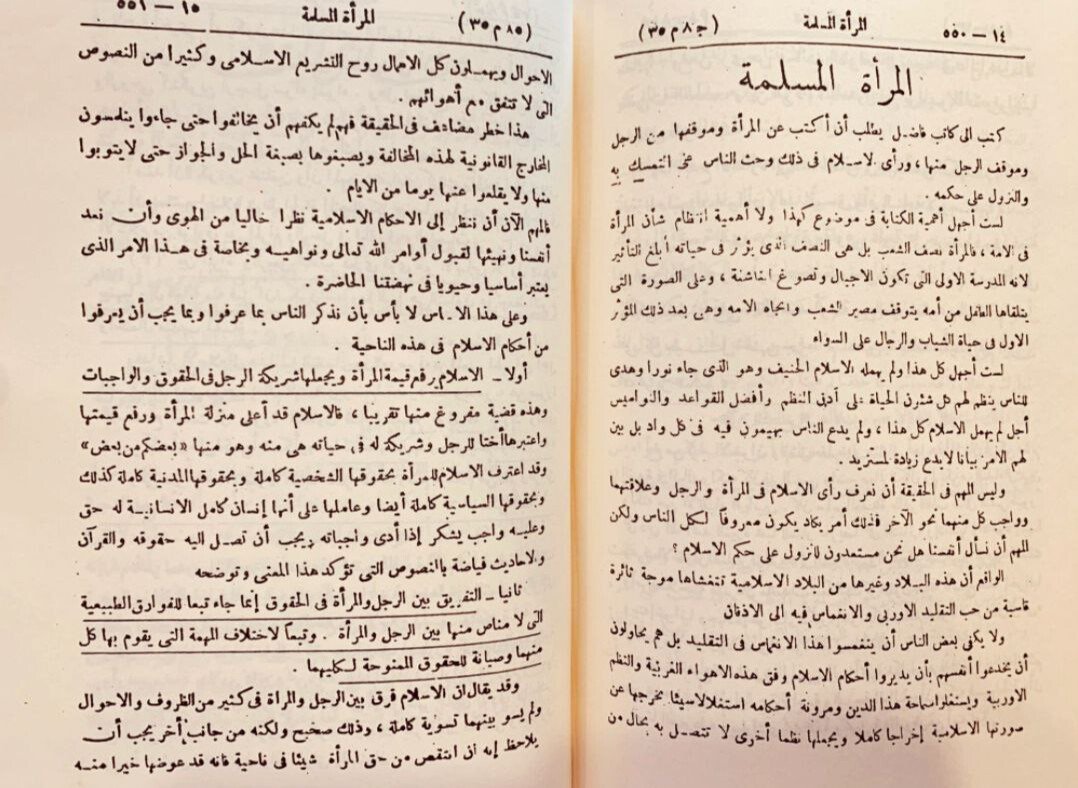 ١٤ — ٥٥٠ المرأة المسلمة (ج ٨ م ٣٥)
المرأة المسلمة
كتب الى كاتب فاضل يطلب أن أكتب عن المرأة وموقفها من الرجل
وموقف الرجل منها ، ورأى الاسلام فى ذلك وحث الناس على التمسك به
والنزول على حكمه .
لست أجهل أهمية الكتابة فى موضوع كهذا ولا أهمية انتظام شأن المرأة
فى الامة ، فالمرأة نصف الشعب بل هى النصف الذى يؤثر فى حياته أبلغ التأثير
لانه المدرسة الاولى التى تكون الاجيال وتصوغ الناشئة ، وعلى الصورة التى
يتلقاها الطفل من أمه يتوقف مصير الشعب واتجاه الامه وهى بعد ذلك المؤثر
الاول فى حياة الشباب والرجال على السواء
لست أجهل كل هذا ولم يهمله الاسلام الحنيف وهو الذى جاء نورا وهدى
للناس ينظم لهم كل شئون الحياة على أدق النظم وأفضل القواعد والنواميس
أجل لم يهمل الاسلام كل هذا ، ولم يدع الناس يهيمون فيه فى كل واد بل بين
لهم الامر بيانا لا يدع زيادة لمستزيد .
وليس المهم فى الحقيقة أن نعرف رأى الاسلام فى المرأة والرجل وعلاقتهما
وواجب كل منهما نحو الآخر فذلك أمر يكاد يكون معروفا لكل الناس ولكن
المهم أن نسأل أنفسنا هل نحن مستعدون للنزول على حكم الاسلام ؟
الواقع أن هذه البلاد وغيرها من البلاد الاسلامية تتغشاها موجة ثائرة
قاسية من حب التقليد الاوربى والانغماس فيه الى الاذقان
ولا يكفى بعض الناس أن ينغمسوا هذا الانغماس فى التقليد بل هم يحاولون
أن يخدعوا أنفسهم بأن يديروا أحكام الاسلام وفق هذه الاهواء الغربية والنظم
الاوربية ويستغلوا سماحة هذا الدين ومرونة أحكامه استغلالا سيئا يخرجها عن
صورتها الاسلامية إخراجا كاملا ويجعلها نظما أخرى لا تتصل به بحال من
١٥ — ٥٥١ المرأة المسلمة (ج ٨ م ٣٥)
الاحوال ويهملون كل الاهمال روح التشريع الاسلامى وكثيرا من النصوص
التى لا تتفق مع أهوائهم .
هذا خطر مضاعف فى الحقيقة فهم لم يكفهم أن يخالفوا حتى جاءوا يتلمسون
المخارج القانونية لهذه المخالفة ويصبغوها بصبغة الحل والجواز حتى لا يتوبوا
منها ولا يقلعوا عنها يوما من الايام .
فالمهم الآن أن ننظر إلى الاحكام الاسلامية نظرا خاليا من الهوى وأن نعد
أنفسنا ونهيئها لقبول أوامر الله تعالى ونواهيه وبخاصة فى هذا الامر الذى
يعتبر أساسيا وحيويا فى نهضتنا الحاضرة .
وعلى هذا الاساس لا بأس بأن نذكر الناس بما عرفوا وبما يجب أن يعرفوا
من أحكام الاسلام فى هذه الناحية .
أولا ــ الاسلام يرفع قيمة المرأة ويجعلها شريكة الرجل فى الحقوق والواجبات
وهذه قضية مفروغ منها تقريبا ، فالاسلام قد أعلى منزلة المرأة ورفع قيمتها
واعتبرها أختا للرجل وشريكة له فى حياته هى منه وهو منها «بعضكم من بعض»
وقد اعترف الاسلام للمرأة بحقوقها الشخصية كاملة وبحقوقها المدنية كاملة كذلك
وبحقوقها السياسية كاملة أيضا وعاملها على أنها إنسان كامل الانسانية له حق
وعليه واجب يشكر إذا أدى واجباته ويجب أن تصل اليه حقوقه والقرآن
والاحاديث فياضة بالنصوص التى تؤكد هذا المعنى وتوضحه
ثانيا ــ التفريق بين الرجل والمرأة فى الحقوق إنما جاء تبعا للفوارق الطبيعية
التى لا مناص منها بين الرجل والمرأة . وتبعا لاختلاف المهمة التى يقوم بها كل
منهما وصيانة للحقوق الممنوحة لكليهما .
وقد يقال ان الاسلام فرق بين الرجل والمرأة فى كثير من الظروف والاحوال
ولم يسو بينهما تسوية كاملة ، وذلك صحيح ولكنه من جانب آخر يجب أن
يلاحظ إنه ان انتقص من حق المرأة شيئا فى ناحية فانه قد عوضها خيرا منه